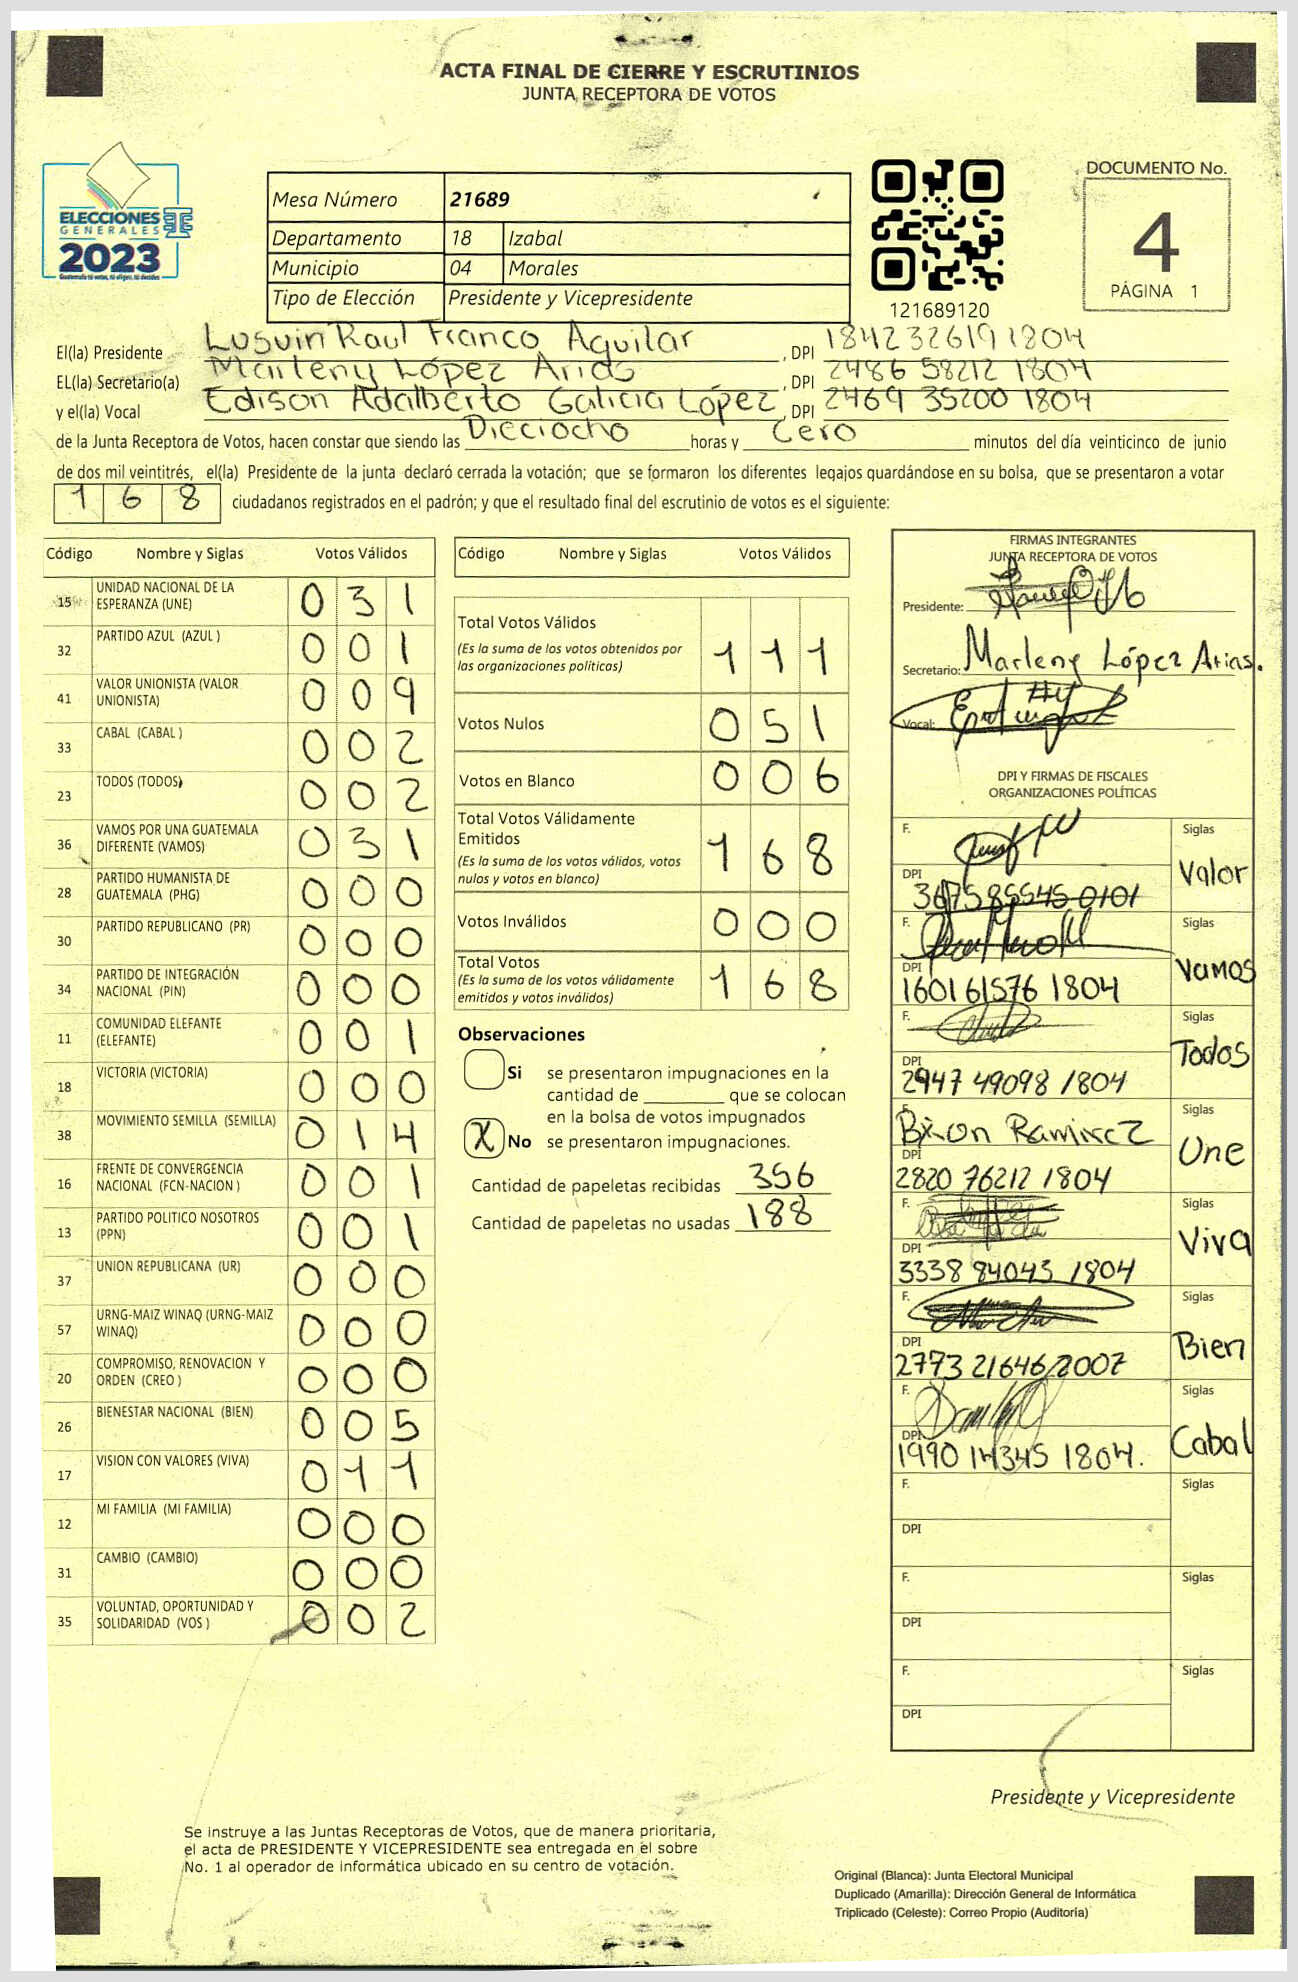 ACTA FINAL DE CIERRE Y ESCRUTINIOS
JUNTA RECEPTORA DE VOTOS
ELECCIONES
GENERALES
2023
Guatemala tú votas, tú eliges, tú decides
Mesa Número 21689
Departamento 18 Izabal
Municipio 04 Morales
Tipo de Elección Presidente y Vicepresidente
121689120
DOCUMENTO No.
4
PÁGINA 1
El(la) Presidente Lusvin Raul Franco Aguilar , DPI 184232619 1804
EL(la) Secretario(a) Marleny López Arias , DPI 2486 58212 1804
y el(la) Vocal Edison Adalberto Galicia López , DPI 2469 35200 1804
de la Junta Receptora de Votos, hacen constar que siendo las Dieciocho horas y Cero minutos del día veinticinco de junio
de dos mil veintitrés, el(la) Presidente de la junta declaró cerrada la votación; que se formaron los diferentes legajos guardándose en su bolsa, que se presentaron a votar
168 ciudadanos registrados en el padrón; y que el resultado final del escrutinio de votos es el siguiente:
Código Nombre y Siglas Votos Válidos
15 UNIDAD NACIONAL DE LA ESPERANZA (UNE) 031
32 PARTIDO AZUL (AZUL ) 001
41 VALOR UNIONISTA (VALOR UNIONISTA) 009
33 CABAL (CABAL ) 002
23 TODOS (TODOS) 002
36 VAMOS POR UNA GUATEMALA DIFERENTE (VAMOS) 031
28 PARTIDO HUMANISTA DE GUATEMALA (PHG) 000
30 PARTIDO REPUBLICANO (PR) 000
34 PARTIDO DE INTEGRACIÓN NACIONAL (PIN) 000
11 COMUNIDAD ELEFANTE (ELEFANTE) 001
18 VICTORIA (VICTORIA) 000
38 MOVIMIENTO SEMILLA (SEMILLA) 014
16 FRENTE DE CONVERGENCIA NACIONAL (FCN-NACION ) 001
13 PARTIDO POLITICO NOSOTROS (PPN) 001
37 UNION REPUBLICANA (UR) 000
57 URNG-MAIZ WINAQ (URNG-MAIZ WINAQ) 000
20 COMPROMISO, RENOVACION Y ORDEN (CREO ) 000
26 BIENESTAR NACIONAL (BIEN) 005
17 VISION CON VALORES (VIVA) 011
12 MI FAMILIA (MI FAMILIA) 000
31 CAMBIO (CAMBIO) 000
35 VOLUNTAD, OPORTUNIDAD Y SOLIDARIDAD (VOS ) 002
Código Nombre y Siglas Votos Válidos
Total Votos Válidos 111
(Es la suma de los votos obtenidos por
las organizaciones políticas)
Votos Nulos 051
Votos en Blanco 006
Total Votos Válidamente
Emitidos 168
(Es la suma de los votos válidos, votos
nulos y votos en blanco)
Votos Inválidos 000
Total Votos 168
(Es la suma de los votos válidamente
emitidos y votos inválidos)
Observaciones
Si se presentaron impugnaciones en la
cantidad de ________ que se colocan
en la bolsa de votos impugnados
X No se presentaron impugnaciones.
Cantidad de papeletas recibidas 356
Cantidad de papeletas no usadas 188
FIRMAS INTEGRANTES
JUNTA RECEPTORA DE VOTOS
Presidente:
Secretario: Marleny López Arias.
Vocal:
DPI Y FIRMAS DE FISCALES
ORGANIZACIONES POLÍTICAS
F. Siglas
Valor
DPI 3675 85545 0101
F. Siglas
Vamos
DPI 1601 61576 1804
F. Siglas
Todos
DPI 2947 49098 1804
F. Siglas
Une
Bixon Ramirez
DPI 2820 76212 1804
F. Siglas
Viva
DPI 3338 84043 1804
F. Siglas
Bien
DPI 2773 21646 2007
F. Siglas
Cabal
DPI 1990 14345 1804.
F. Siglas
DPI
F. Siglas
DPI
F. Siglas
DPI
Presidente y Vicepresidente
Se instruye a las Juntas Receptoras de Votos, que de manera prioritaria,
el acta de PRESIDENTE Y VICEPRESIDENTE sea entregada en el sobre
No. 1 al operador de informática ubicado en su centro de votación.
Original (Blanca): Junta Electoral Municipal
Duplicado (Amarilla): Dirección General de Informática
Triplicado (Celeste): Correo Propio (Auditoría)